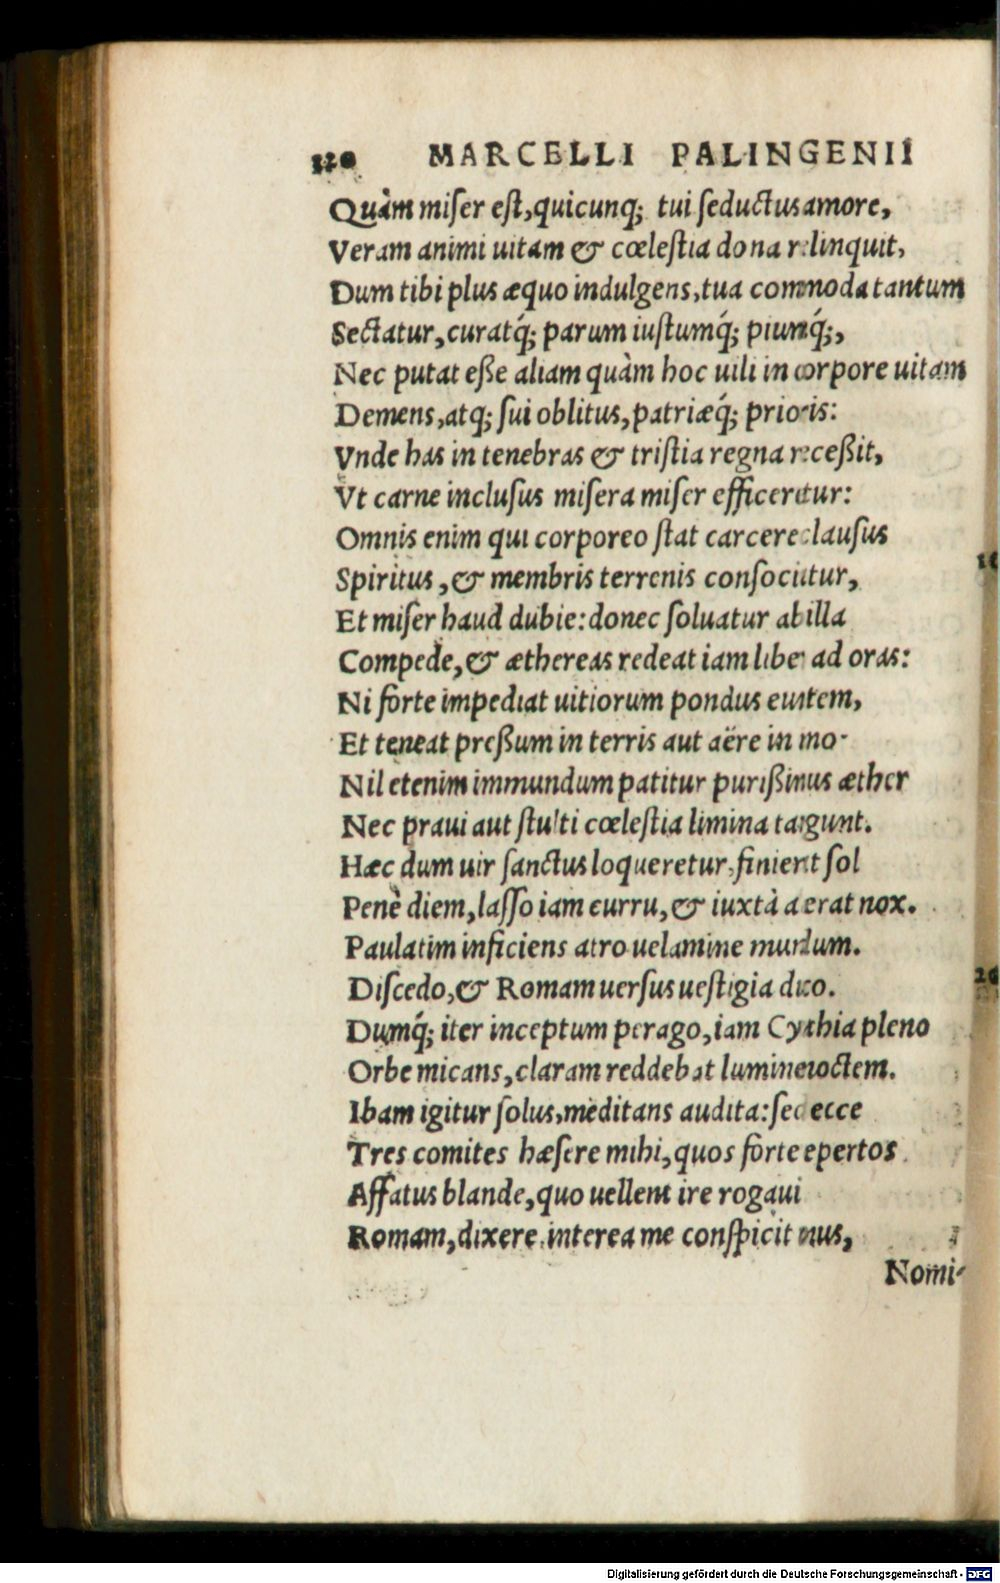 320 MARCELLI PALINGENII
Quàm miſer eſt, quicunq; tui ſeductus amore,
Veram animi uitam & cœleſtia dona relinquit,
Dum tibi plus æquo indulgens, tua commoda tantum
Sectatur, curatq́; parum iuſtumq́; piumq́;,
Nec putat eſſe aliam quàm hoc uili in corpore uitam
Demens, atq; ſui oblitus, patriæq́; prioris:
Vnde has in tenebras & triſtia regna receßit,
Vt carne incluſus miſera miſer efficeretur:
Omnis enim qui corporeo ſtat carcere clauſus
Spiritus, & membris terrenis conſociatur,
Et miſer haud dubie: donec ſoluatur ab illa
Compede, & æthereas redeat iam liber ad oras:
Ni forte impediat uitiorum pondus euntem,
Et teneat preßum in terris aut aëre in imo.
Nil etenim immundum patitur purißimus æther
Nec praui aut ſtulti cœleſtia limina tangunt.
Hæc dum uir ſanctus loqueretur, finierat ſol
Penè diem, laſſo iam curru, & iuxtà aderat nox.
Paulatim inficiens atro uelamine mundum.
Diſcedo, & Romam uerſus ueſtigia duco.
Dumq́; iter inceptum perago, iam Cynthia pleno
Orbe micans, claram reddebat lumine noctem.
Ibam igitur ſolus, meditans audita: ſed ecce
Tres comites hæſere mihi, quos forte repertos
Affatus blande, quo uellent ire rogaui
Romam, dixere. interea me conſpicit unus,
Nomi-
Digitalisierung gefördert durch die Deutsche Forschungsgemeinschaft - DFG